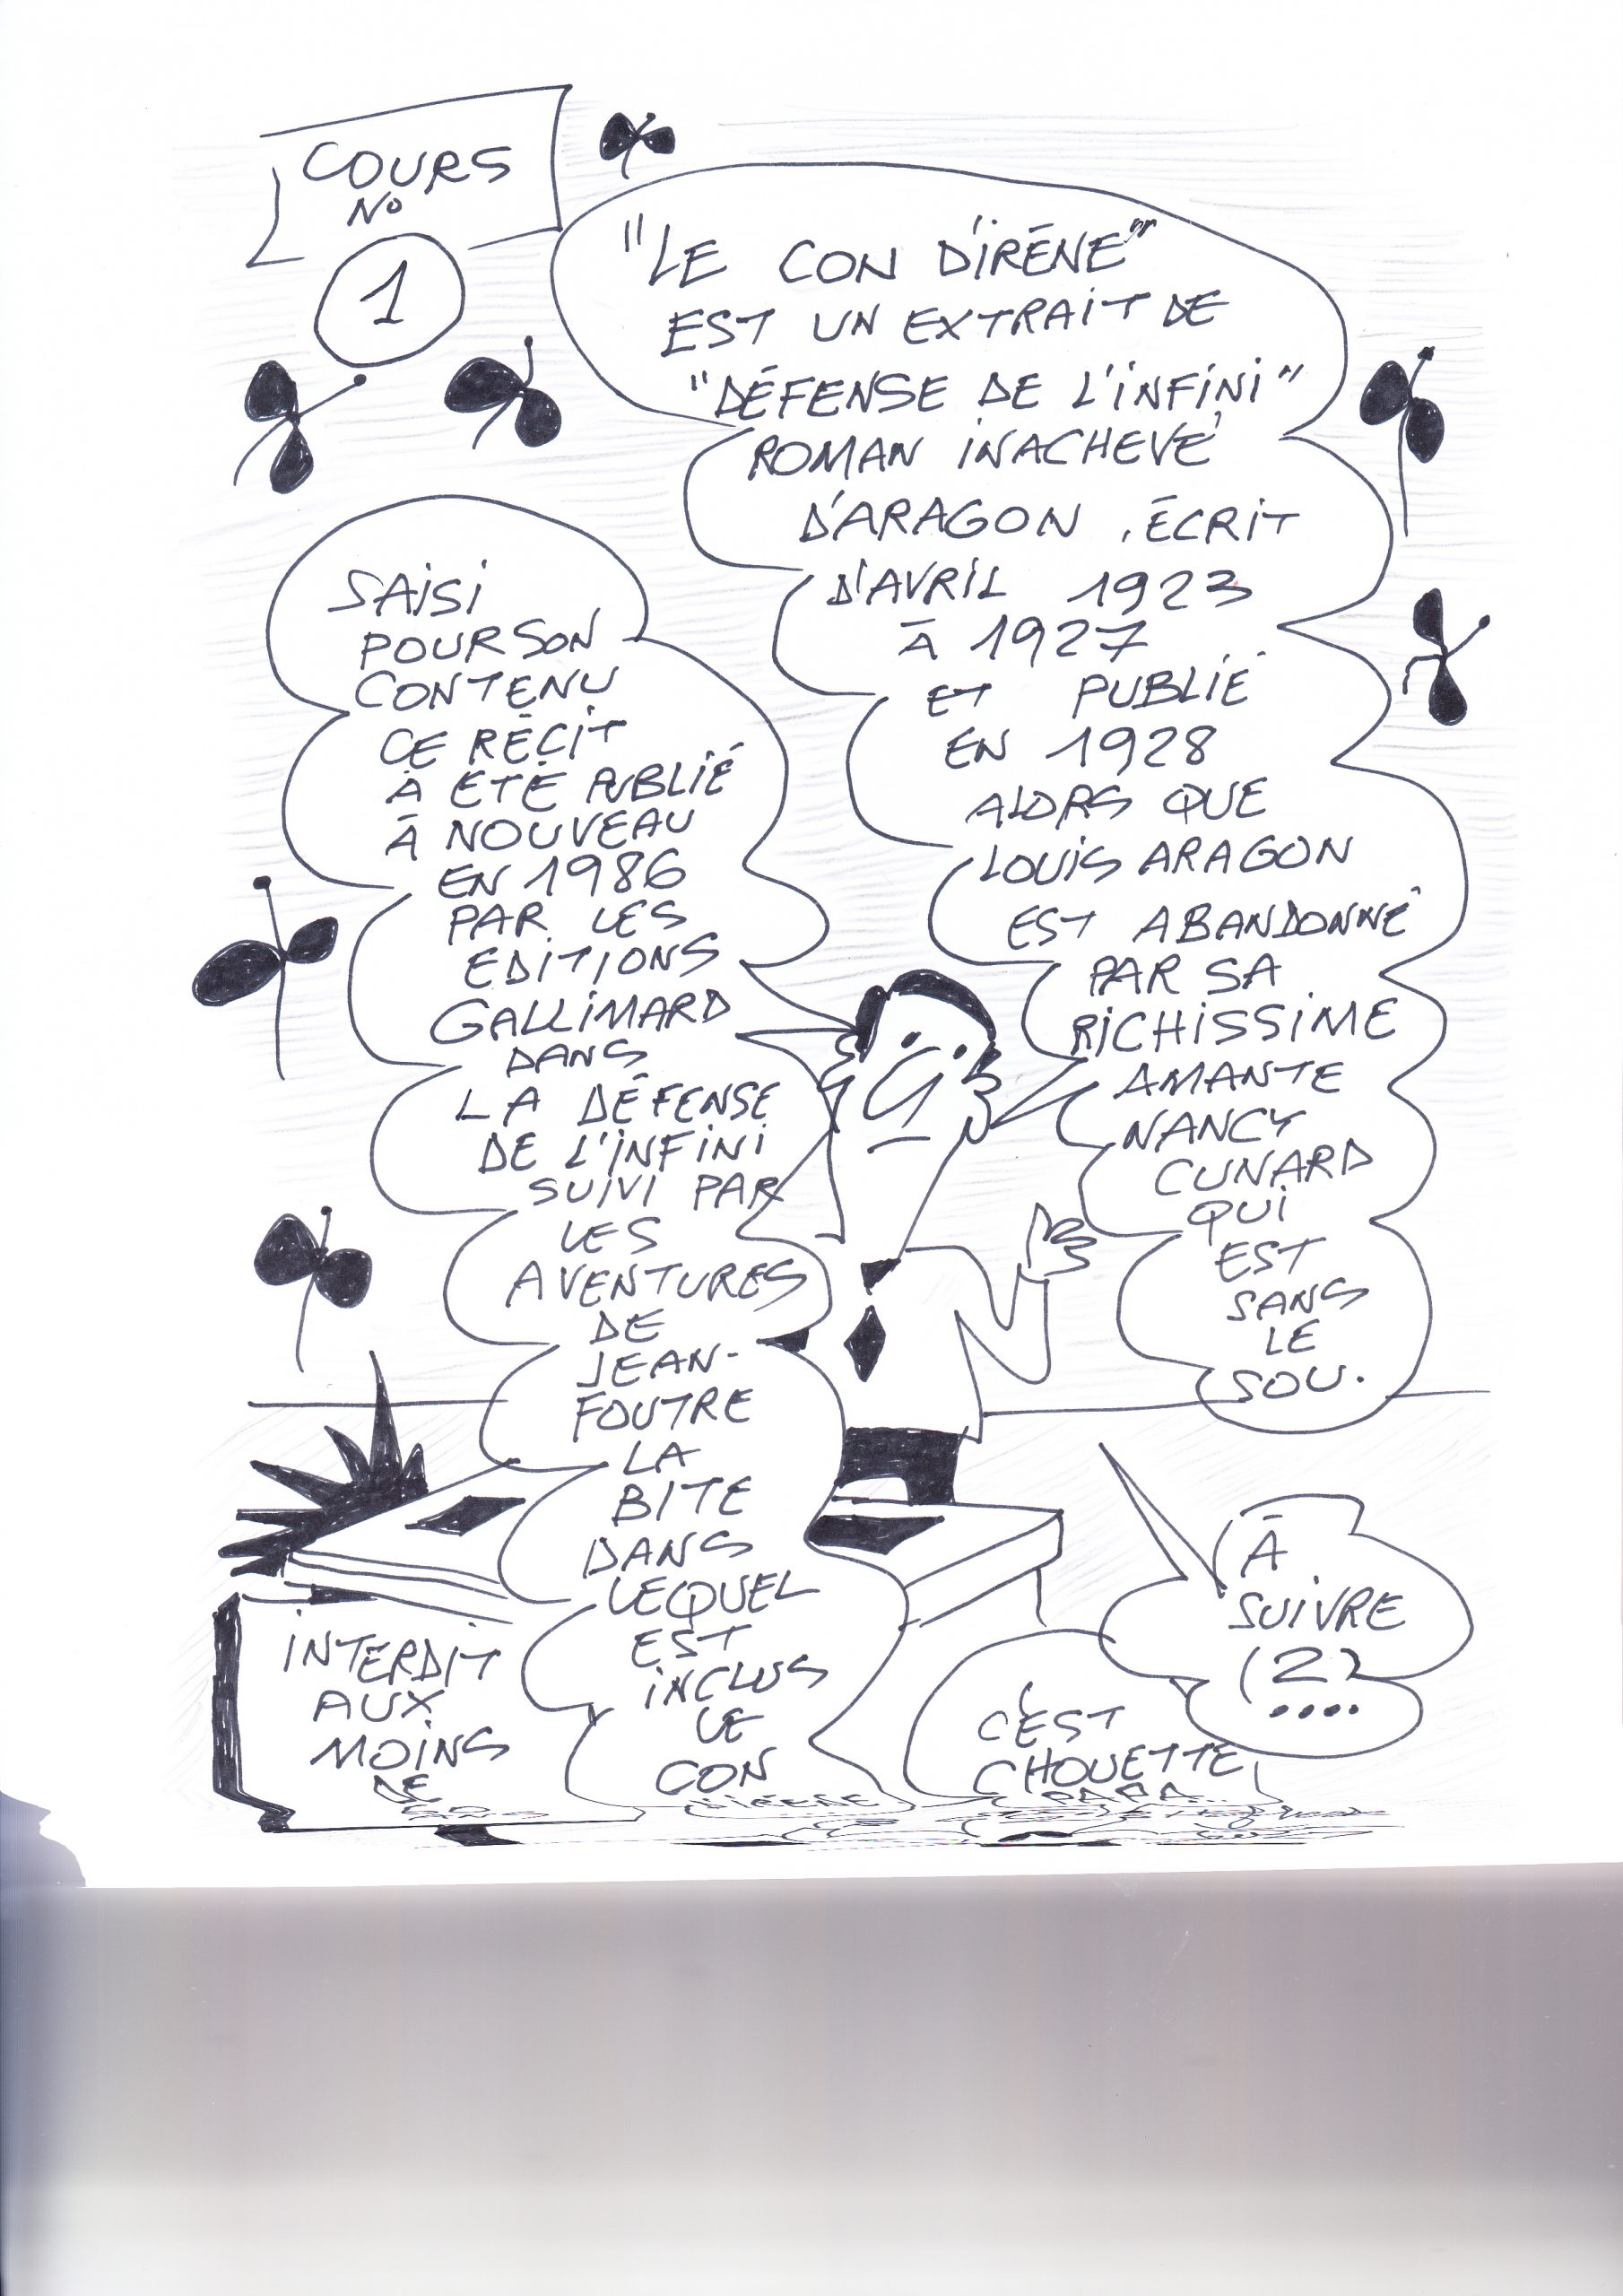 COURS
N°
1
"LE CON D'IRÈNE"
EST UN EXTRAIT DE
"DÉFENSE DE L'INFINI"
ROMAN INACHEVÉ
D'ARAGON, ÉCRIT
D'AVRIL 1923
À 1927
ET PUBLIÉ
EN 1928
ALORS QUE
LOUIS ARAGON
EST ABANDONNÉ
PAR SA
RICHISSIME
AMANTE
NANCY
CUNARD
QUI
EST
SANS
LE
SOU.
SAISI
POUR SON
CONTENU
CE RÉCIT
A ÉTÉ PUBLIÉ
À NOUVEAU
EN 1986
PAR LES
EDITIONS
GALLIMARD
DANS
LA DÉFENSE
DE L'INFINI
SUIVI PAR
LES
AVENTURES
DE
JEAN-
FOUTRE
LA
BITE
DANS
LEQUEL
EST
INCLUS
LE
CON
D'IRÈNE
INTERDIT
AUX
MOINS
DE
À
SUIVRE
(2)
....
C'EST
CHOUETTE
PAPA..